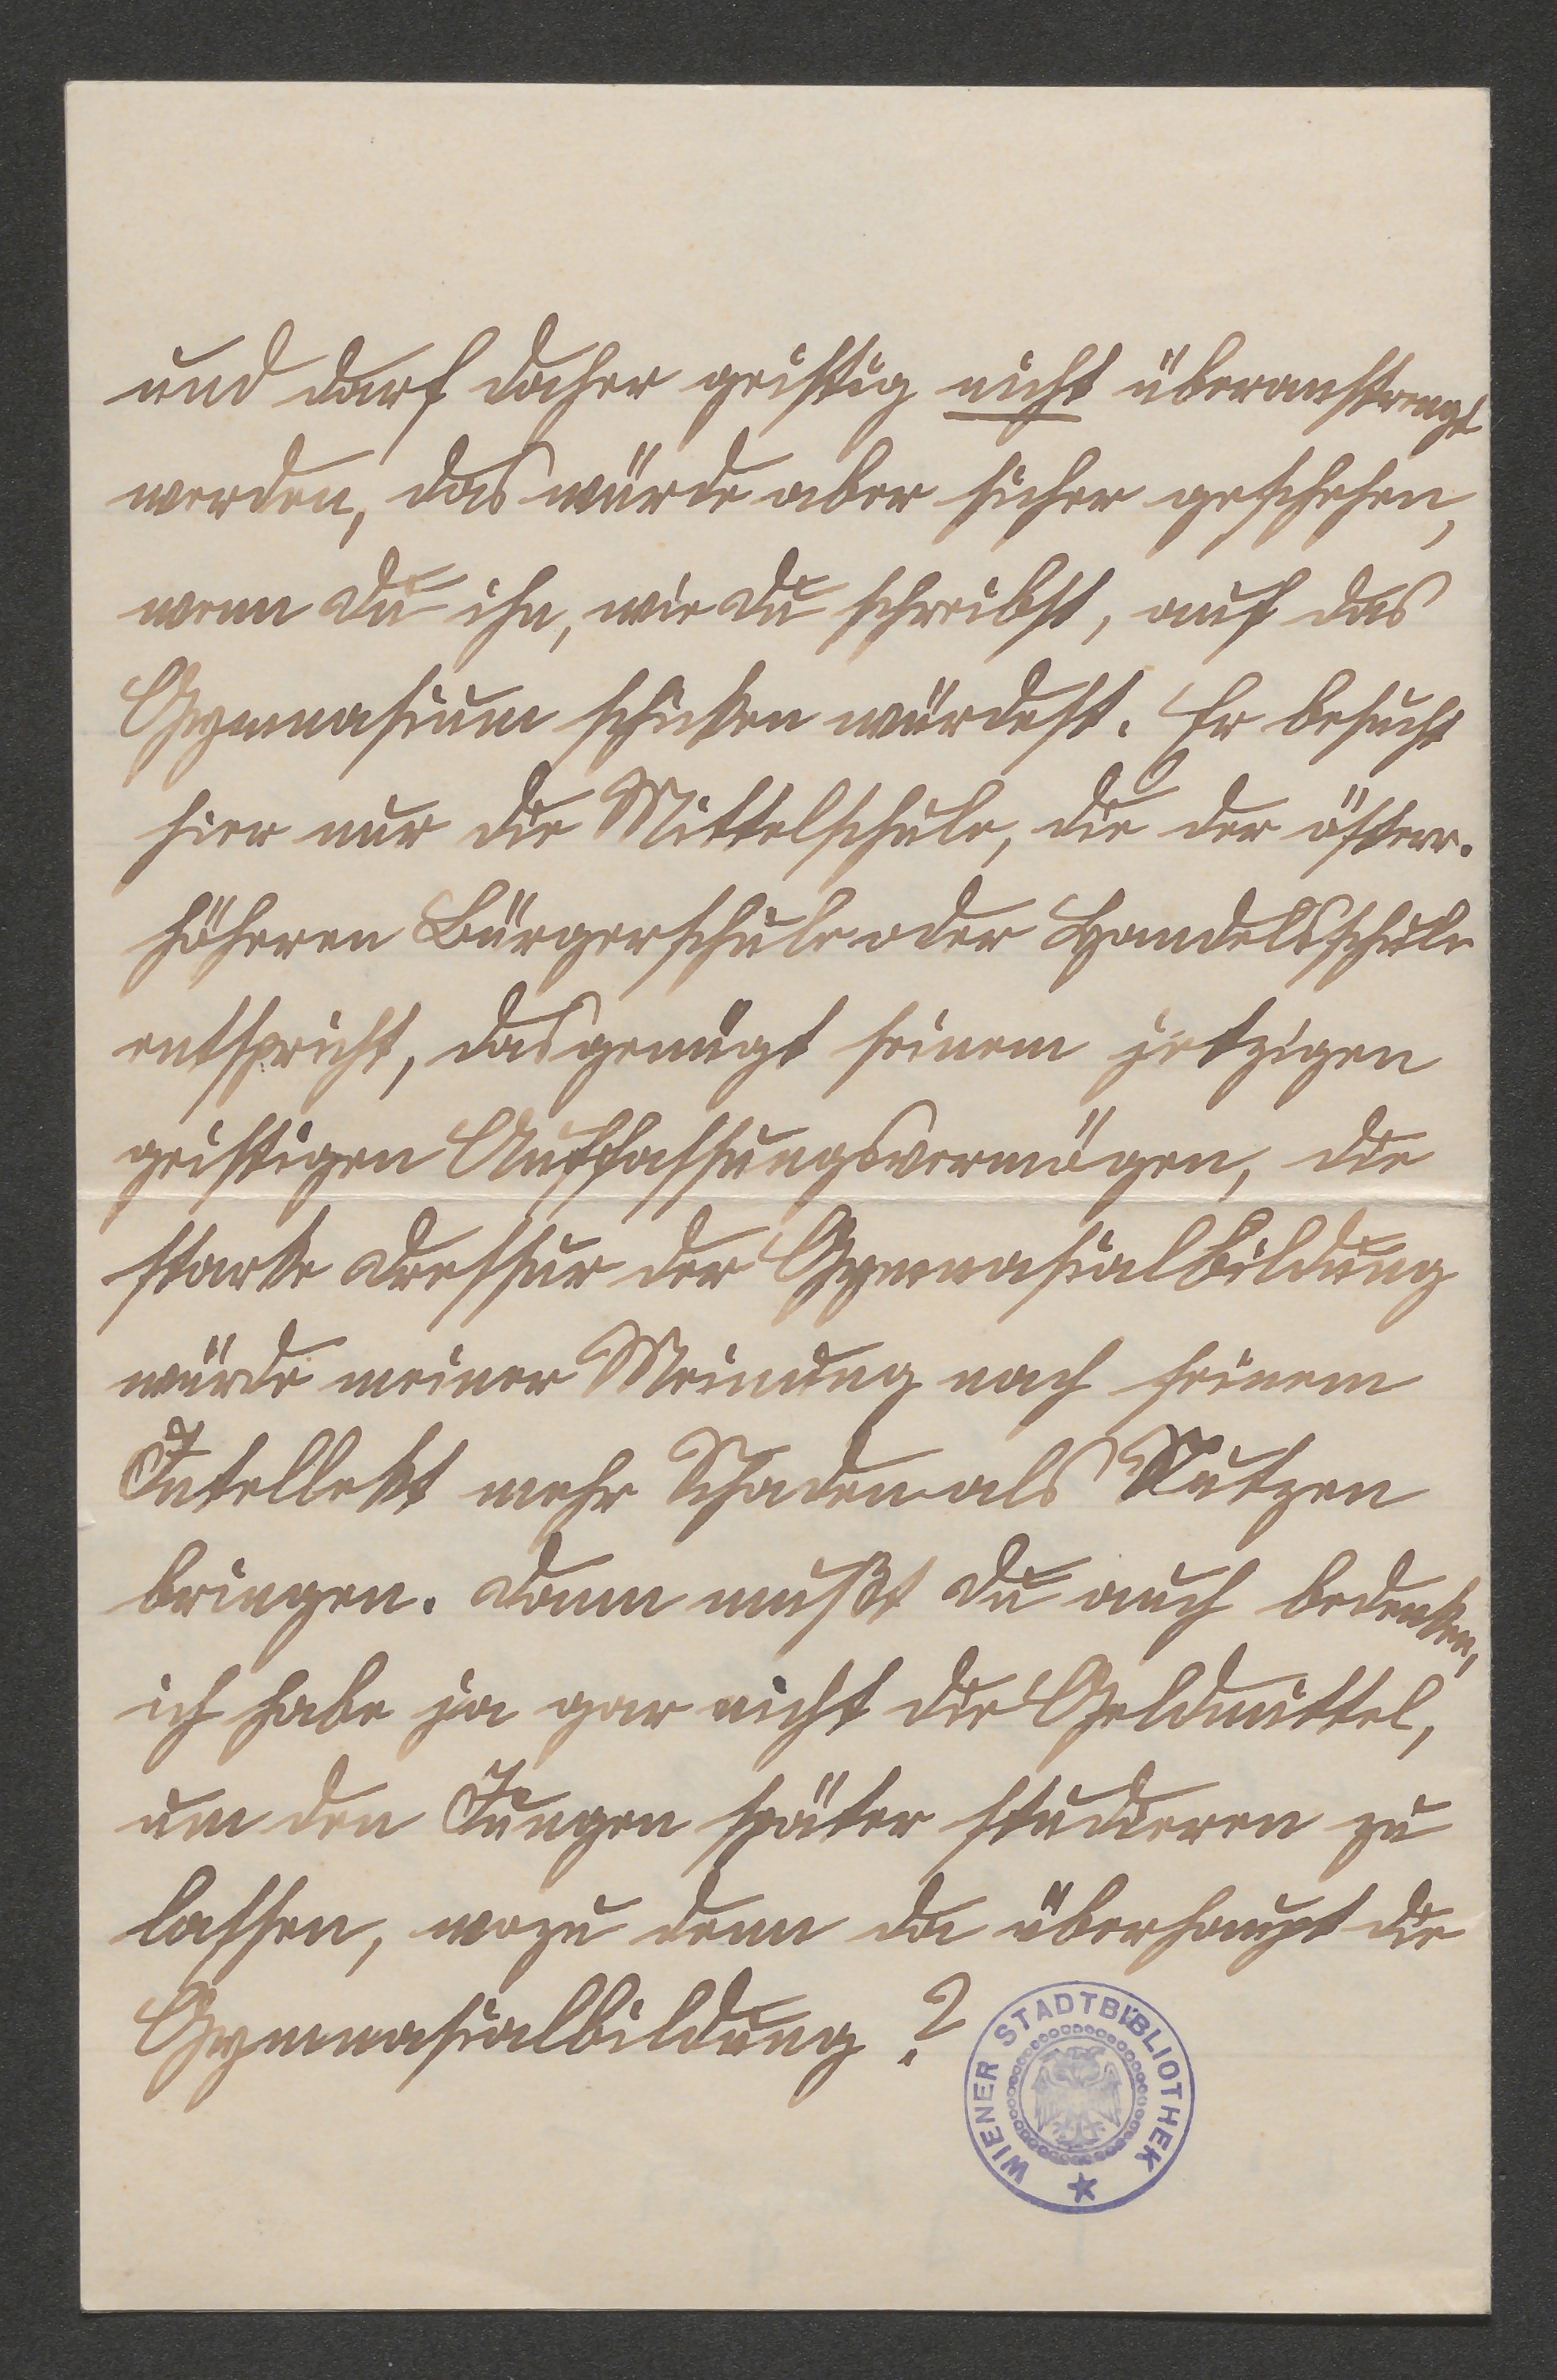 und darf daher geistig nicht überanstrengt
werden, das würde aber sicher geschehen,
wenn Du ihn, wie Du schreibst, auf das
Gymnasium schicken würdest. Er besucht
hier nur die Mittelschule, die der österr.
höheren Bürgerschule oder Handelsschule
entspricht, das genügt seinem jetzigen
geistigen Auffassungsvermögen, die
starke Dressur der Gymnasialbildung
würde meiner Meinung nach seinem
Intellekt mehr Schaden als Nutzen
bringen. Dann mußt Du auch bedenken,
ich habe ja gar nicht die Geldmittel,
um den Jungen später studieren zu
lassen, wozu denn da überhaupt die
Gymnasialbildung?
WIENER STADTBIBLIOTHEK